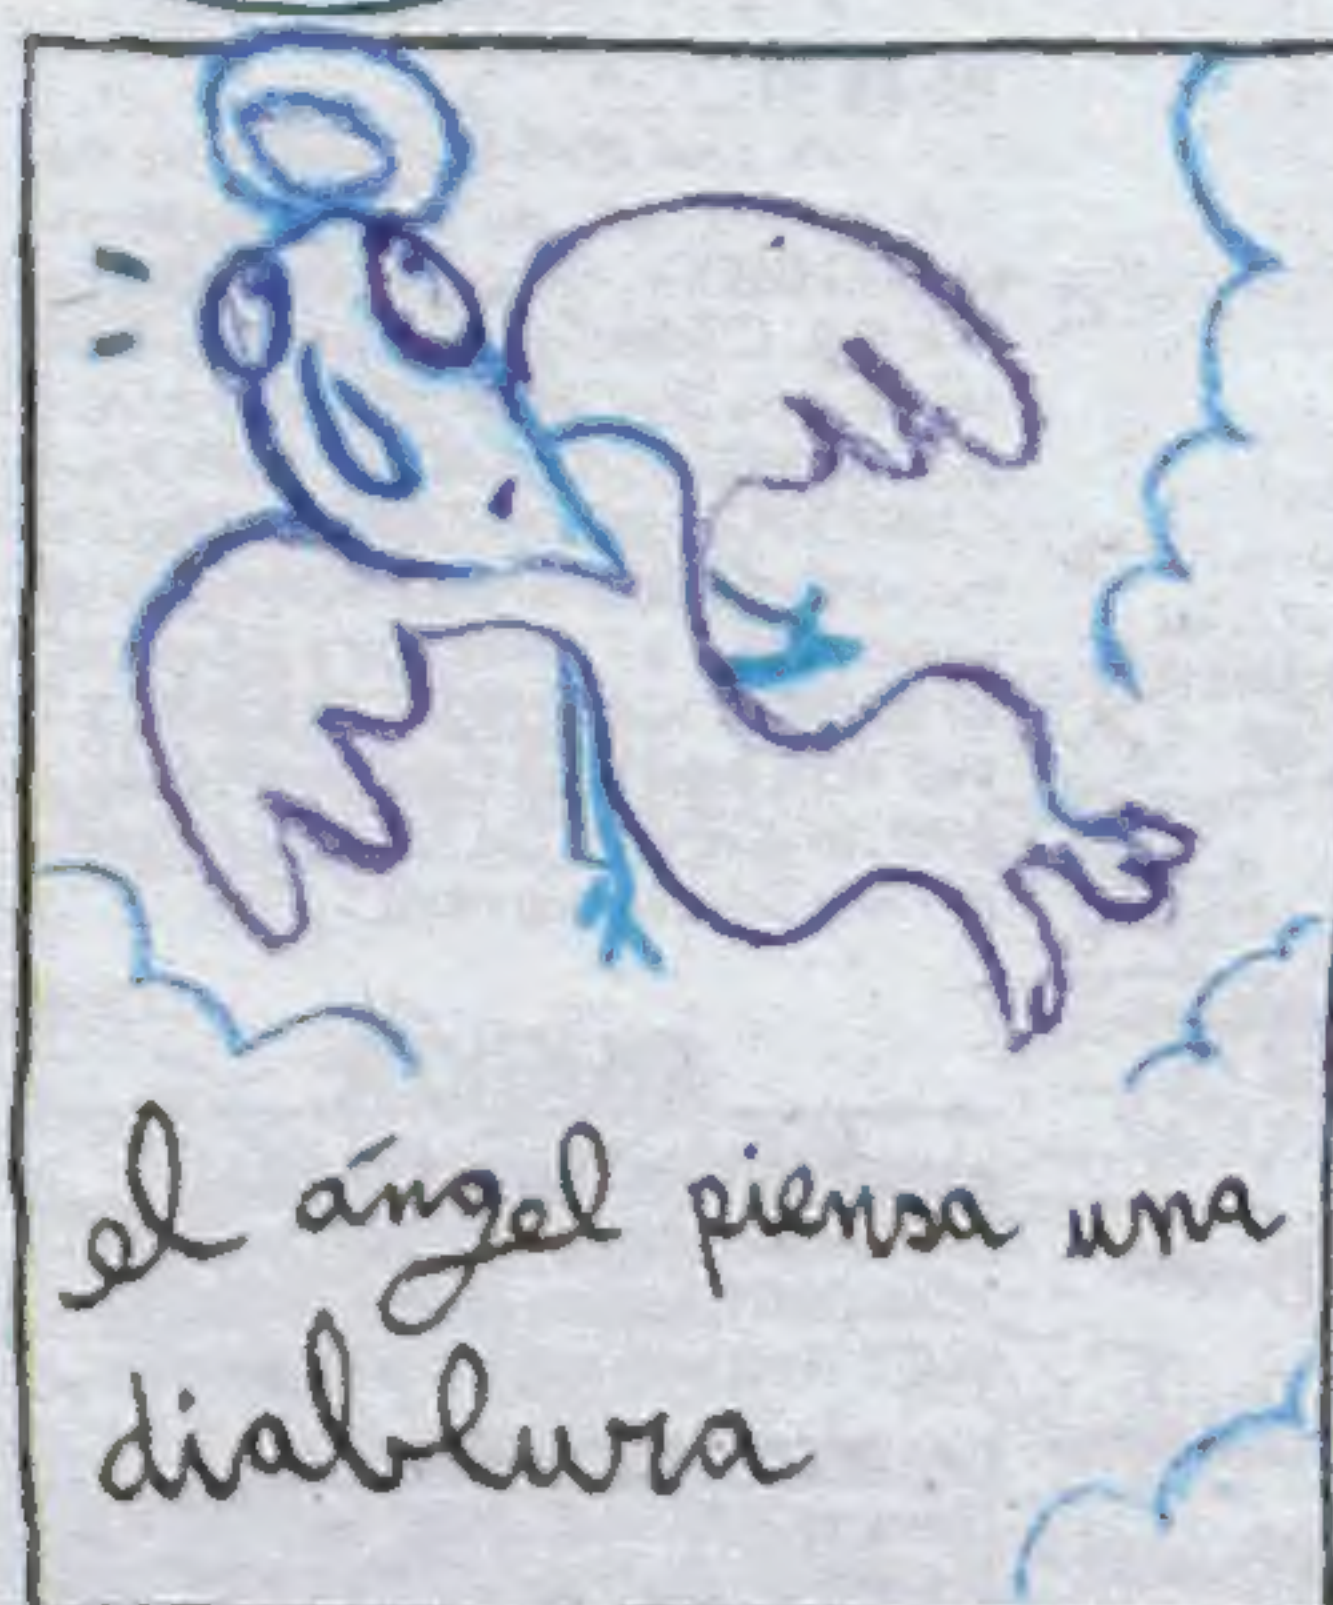 el ángel piensa una
diablura